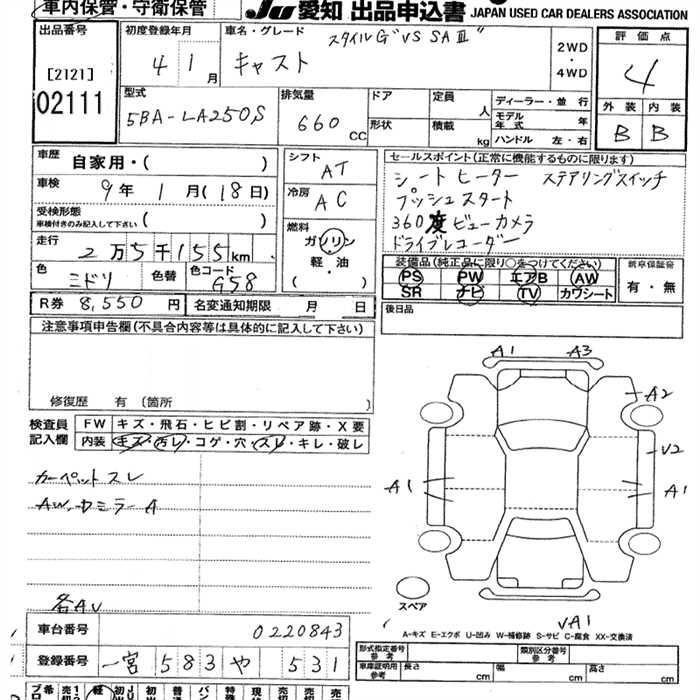 車内保管・守衛保管
JU 愛知 出品申込書 JAPAN USED CAR DEALERS ASSOCIATION
出品番号
[2121]
02111
初度登録年月
4年1月
車名・グレード
スタイルG"VS SAⅢ"
キャスト
2WD
・
4WD
評価点
4
外装 内装
B B
型式
5BA-LA250S
排気量
660 CC
ドア
形状
定員 人
積載 kg
ディーラー・並行
モデル年式 年
ハンドル 左・右
車歴 自家用・( )
車検 9年1月(18日)
受検形態
車検付きのみ記入して下さい ( )
走行 2万5千155km
色 ミドリ 色替 色コード G58
シフト AT
冷房 AC
燃料
ガソリン
軽・油
( )
セールスポイント(正常に機能するものに限ります)
シートヒーター ステアリングスイッチ
プッシュスタート
360度ビューカメラ
ドライブレコーダー
装備品(純正品に限り○をつけてください)
PS PW エアB AW
SR ナビ TV カワシート
新車保証書
有・無
R券 8,550円 名変通知期限 月 日
後日品
注意事項申告欄(不具合内容等は具体的に記入して下さい)
修復歴 有 (箇所 )
検査員記入欄
FW キズ・飛石・ヒビ割・リペア跡・X要
内装 キズ・汚レ・コゲ・穴・スレ・キレ・破レ
カーペットスレ
AW、ドミラーA
各AU
A1 A3
A2
V2
A1 A1
スペア
VA1
A-キズ E-エクボ U-凹み W-補修跡 S-サビ C-腐食 XX-交換済
車台番号 0220843
登録番号 一宮 583 や 531
形式指定番号
参考
類別区分番号
参考
車庫証明用
参考
長さ cm 幅 cm 高さ cm